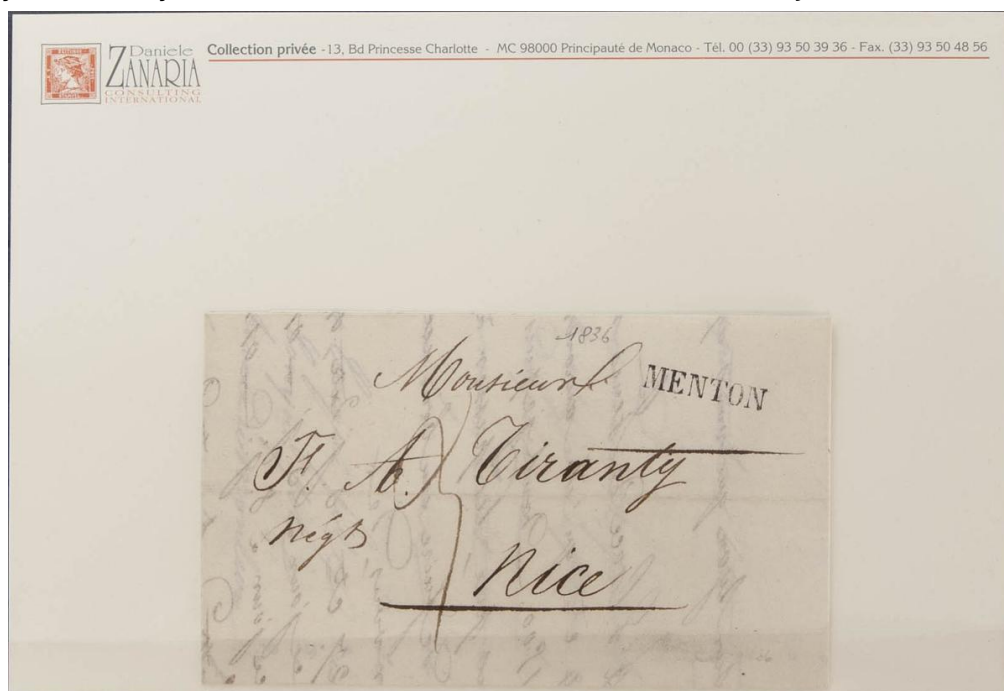 Daniele
ZANARIA
CONSULTING
INTERNATIONAL
Collection privée - 13, Bd Princesse Charlotte - MC 98000 Principauté de Monaco - Tél. 00 (33) 93 50 39 36 - Fax. (33) 93 50 48 56
1836
Monsieur
MENTON
F. A. Tiranty
Négt
Nice